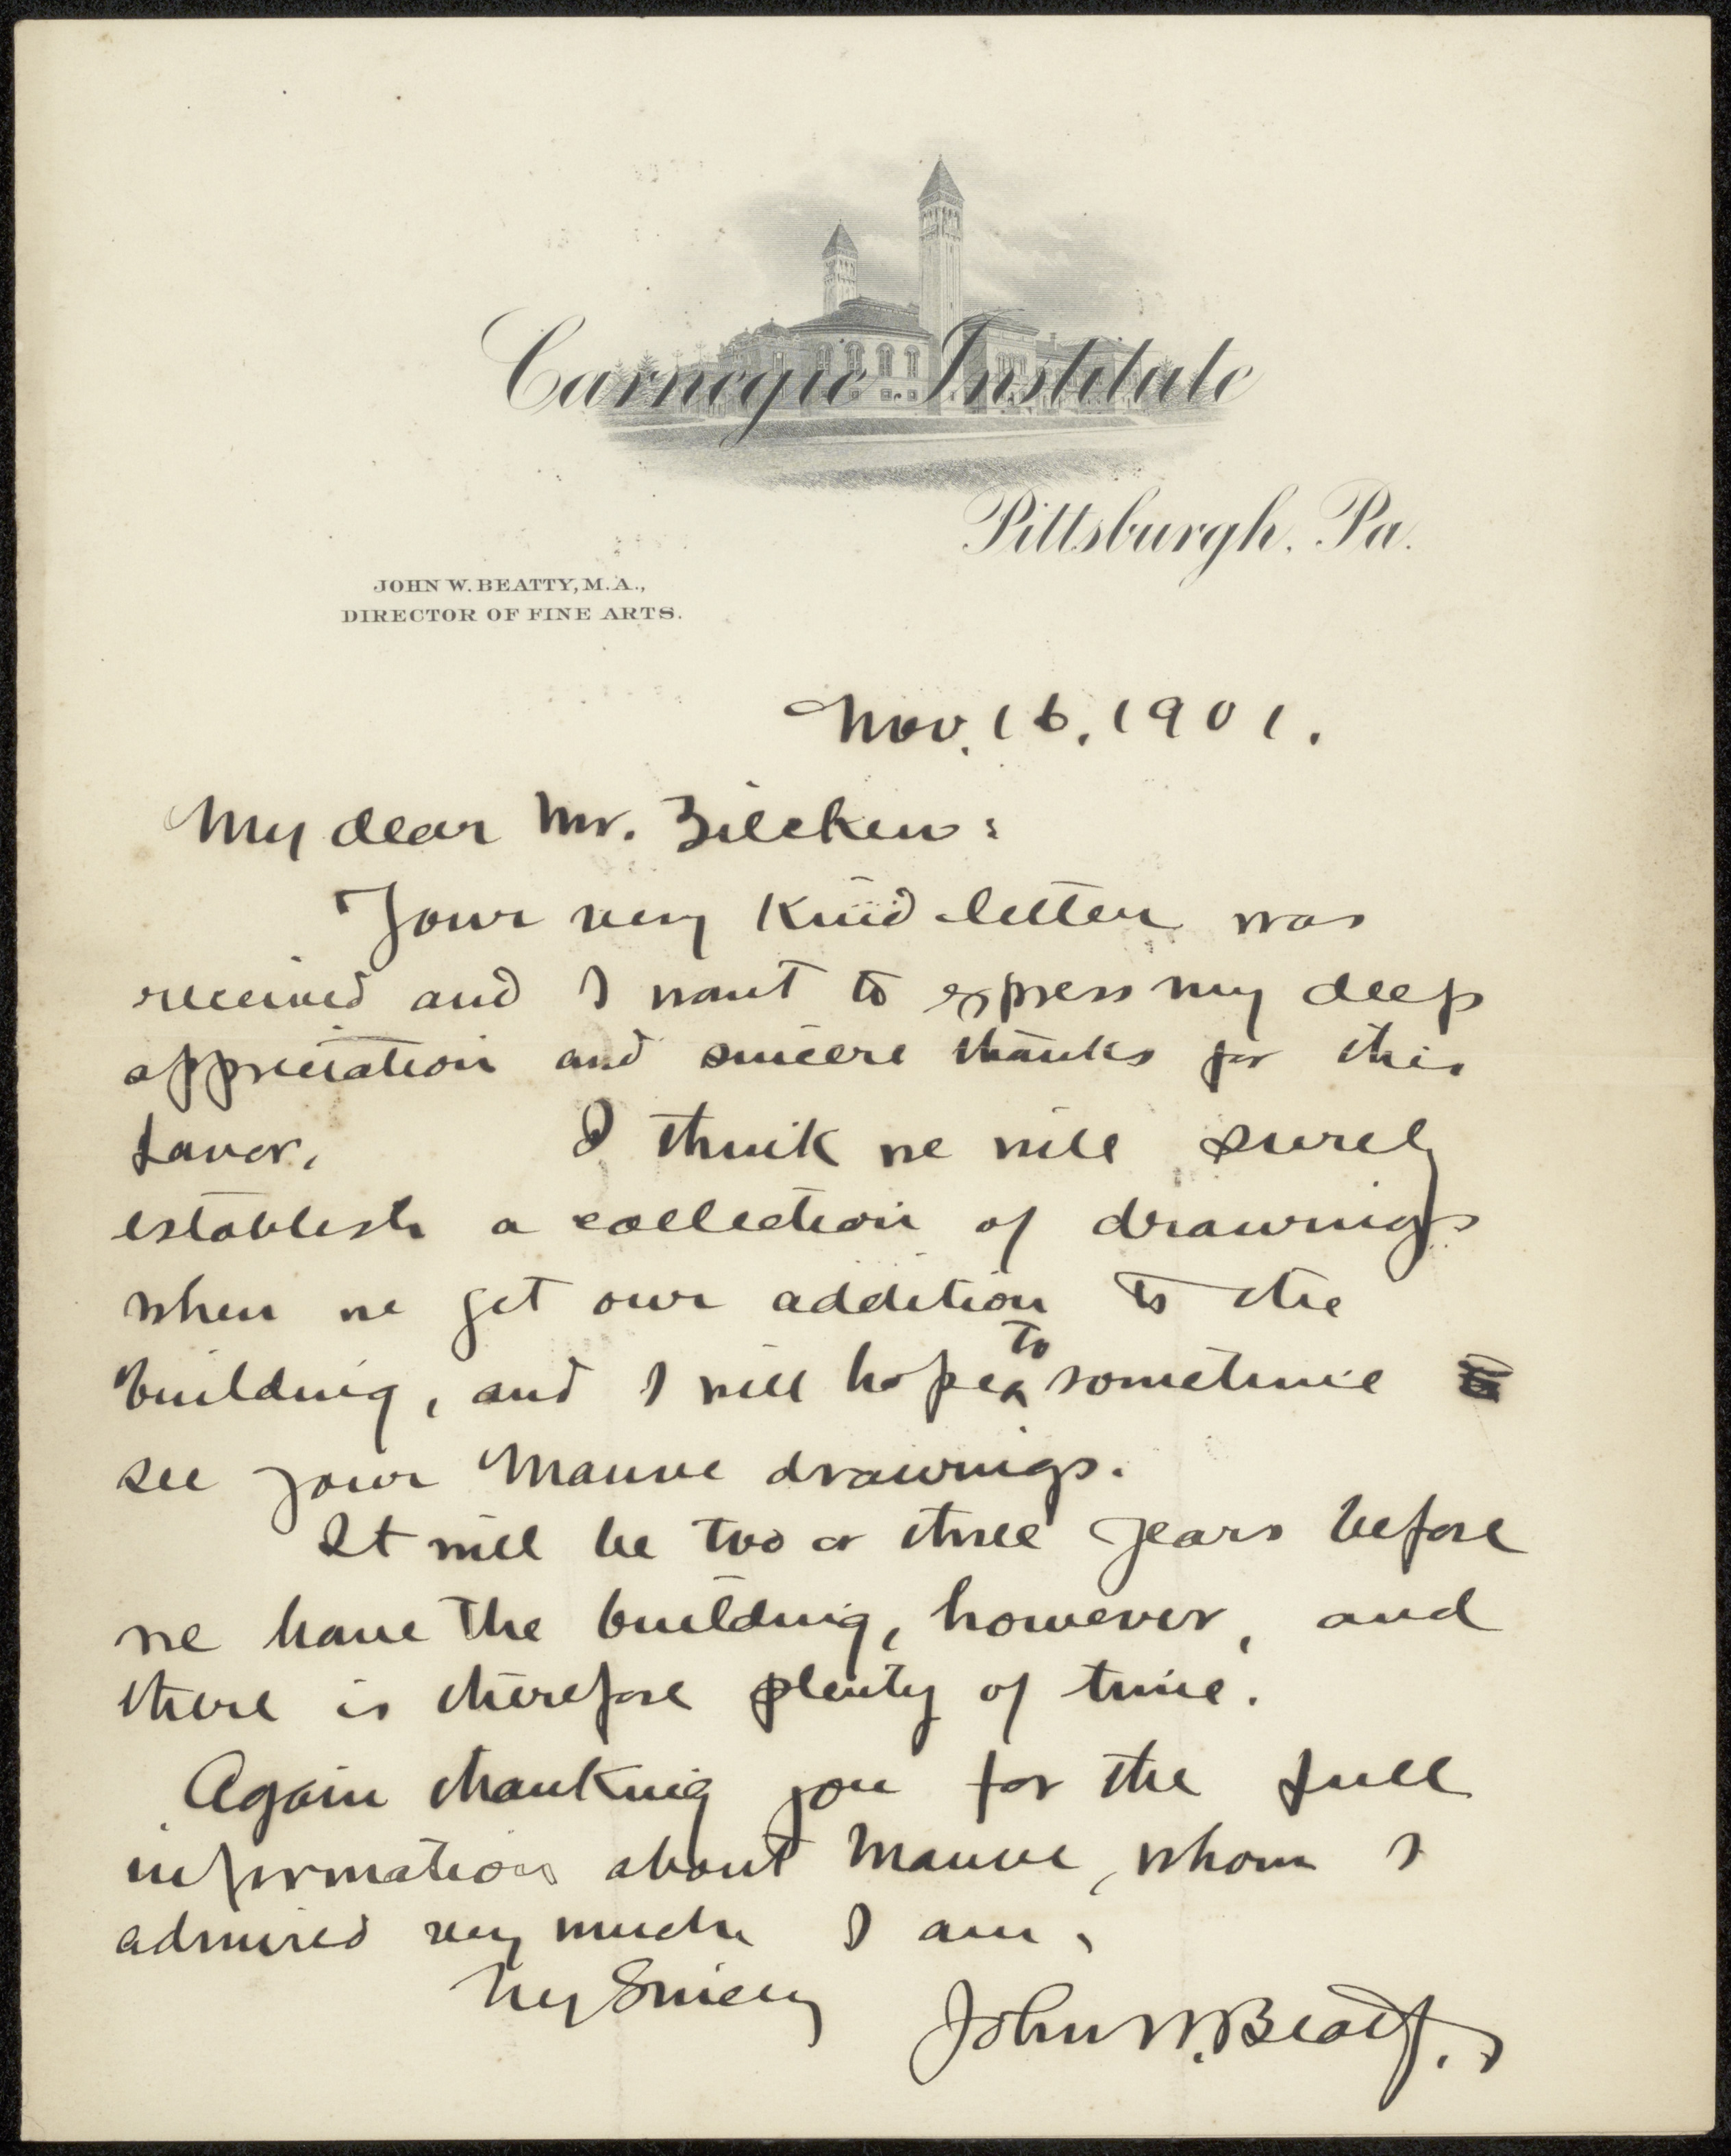 Carnegie Institute
Pittsburgh, Pa.
JOHN W. BEATTY, M.A.,
DIRECTOR OF FINE ARTS.
Nov. 16, 1901.
My dear Mr. Zilcken:
Your very kind letter was
received and I want to express my deep
appreciation and sincere thanks for this
favor. I think we will surely
establish a collection of drawings
when we get our addition to the
building, and I will hope to sometime
see your Mauve drawings.
It will be two or three years before
we have the building, however, and
there is therefore plenty of time.
Again thanking you for the full
information about Mauve, whom I
admired very much I am,
Very Sincerely
John W. Beatty.